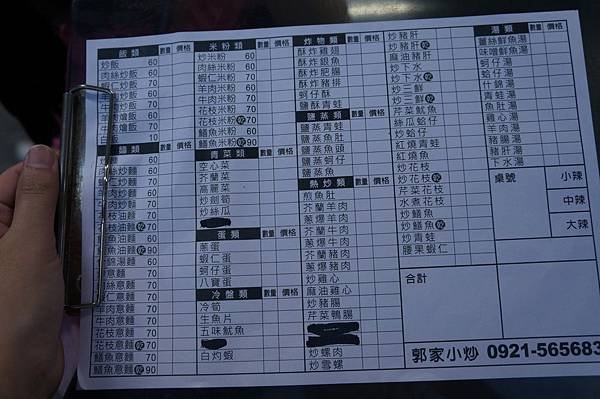 飯類 數量 價格
炒飯 60
肉絲炒飯 60
蝦仁炒飯 70
60
70
70
10
麵類 數量 價格
炒麵 60
肉絲炒麵 60
炒麵 70
炒麵 60
炒麵 70
花枝油麵 70
花枝油麵 乾 70
魚油麵 60
魚油麵 乾 90
什錦湯麵 60
意麵 70
蝦仁意麵 70
羊肉意麵 70
牛肉意麵 70
花枝意麵 70
花枝意麵 乾 70
鱔魚意麵 70
鱔魚意麵 乾 90
米粉類 數量 價格
炒米粉 60
肉絲米粉 60
蝦仁米粉 70
羊肉米粉 60
牛肉米粉 70
花枝米粉 70
花枝米粉 乾 70
鱔魚米粉 60
鱔魚米粉 乾 90
青菜類 數量 價格
空心菜
芥蘭菜
高麗菜
炒劍筍
炒絲瓜
蛋類 數量 價格
蔥蛋
蝦仁蛋
蚵仔蛋
八寶蛋
冷盤類 數量 價格
冷筍
生魚片
五味魷魚
白灼蝦
炸物類 數量 價格
酥炸雞翅
酥炸銀魚
酥炸肥腸
酥炸豬排
蚵仔酥
鹽酥青蛙
鹽蒸類 數量 價格
鹽蒸青蛙
鹽蒸魚肚
鹽蒸魚頭
鹽蒸蚵仔
鹽蒸魚
熱炒類 數量 價格
煎魚肚
芥蘭羊肉
蔥爆羊肉
芥蘭牛肉
蔥爆牛肉
芥蘭豬肉
蔥爆豬肉
炒雞心
麻油雞心
炒豬腸
芹菜鴨腸
炒螺肉
炒雪螺
炒豬肝
炒豬肝 乾
麻油豬肝
炒下水
炒下水 乾
炒三鮮
炒三鮮 乾
芹菜魷魚
絲瓜蛤仔
炒蛤仔
紅燒青蛙
紅燒魚
炒花枝
炒花枝 乾
芹菜花枝
水煮花枝
炒鱔魚
炒鱔魚 乾
炒青蛙
腰果蝦仁
湯類 數量 價格
薑絲鮮魚湯
味噌鮮魚湯
蚵仔湯
蛤仔湯
什錦湯
青蛙湯
魚肚湯
雞心湯
羊肉湯
豬腸湯
豬肝湯
下水湯
桌號
小辣
中辣
大辣
合計
郭家小炒 0921-565683